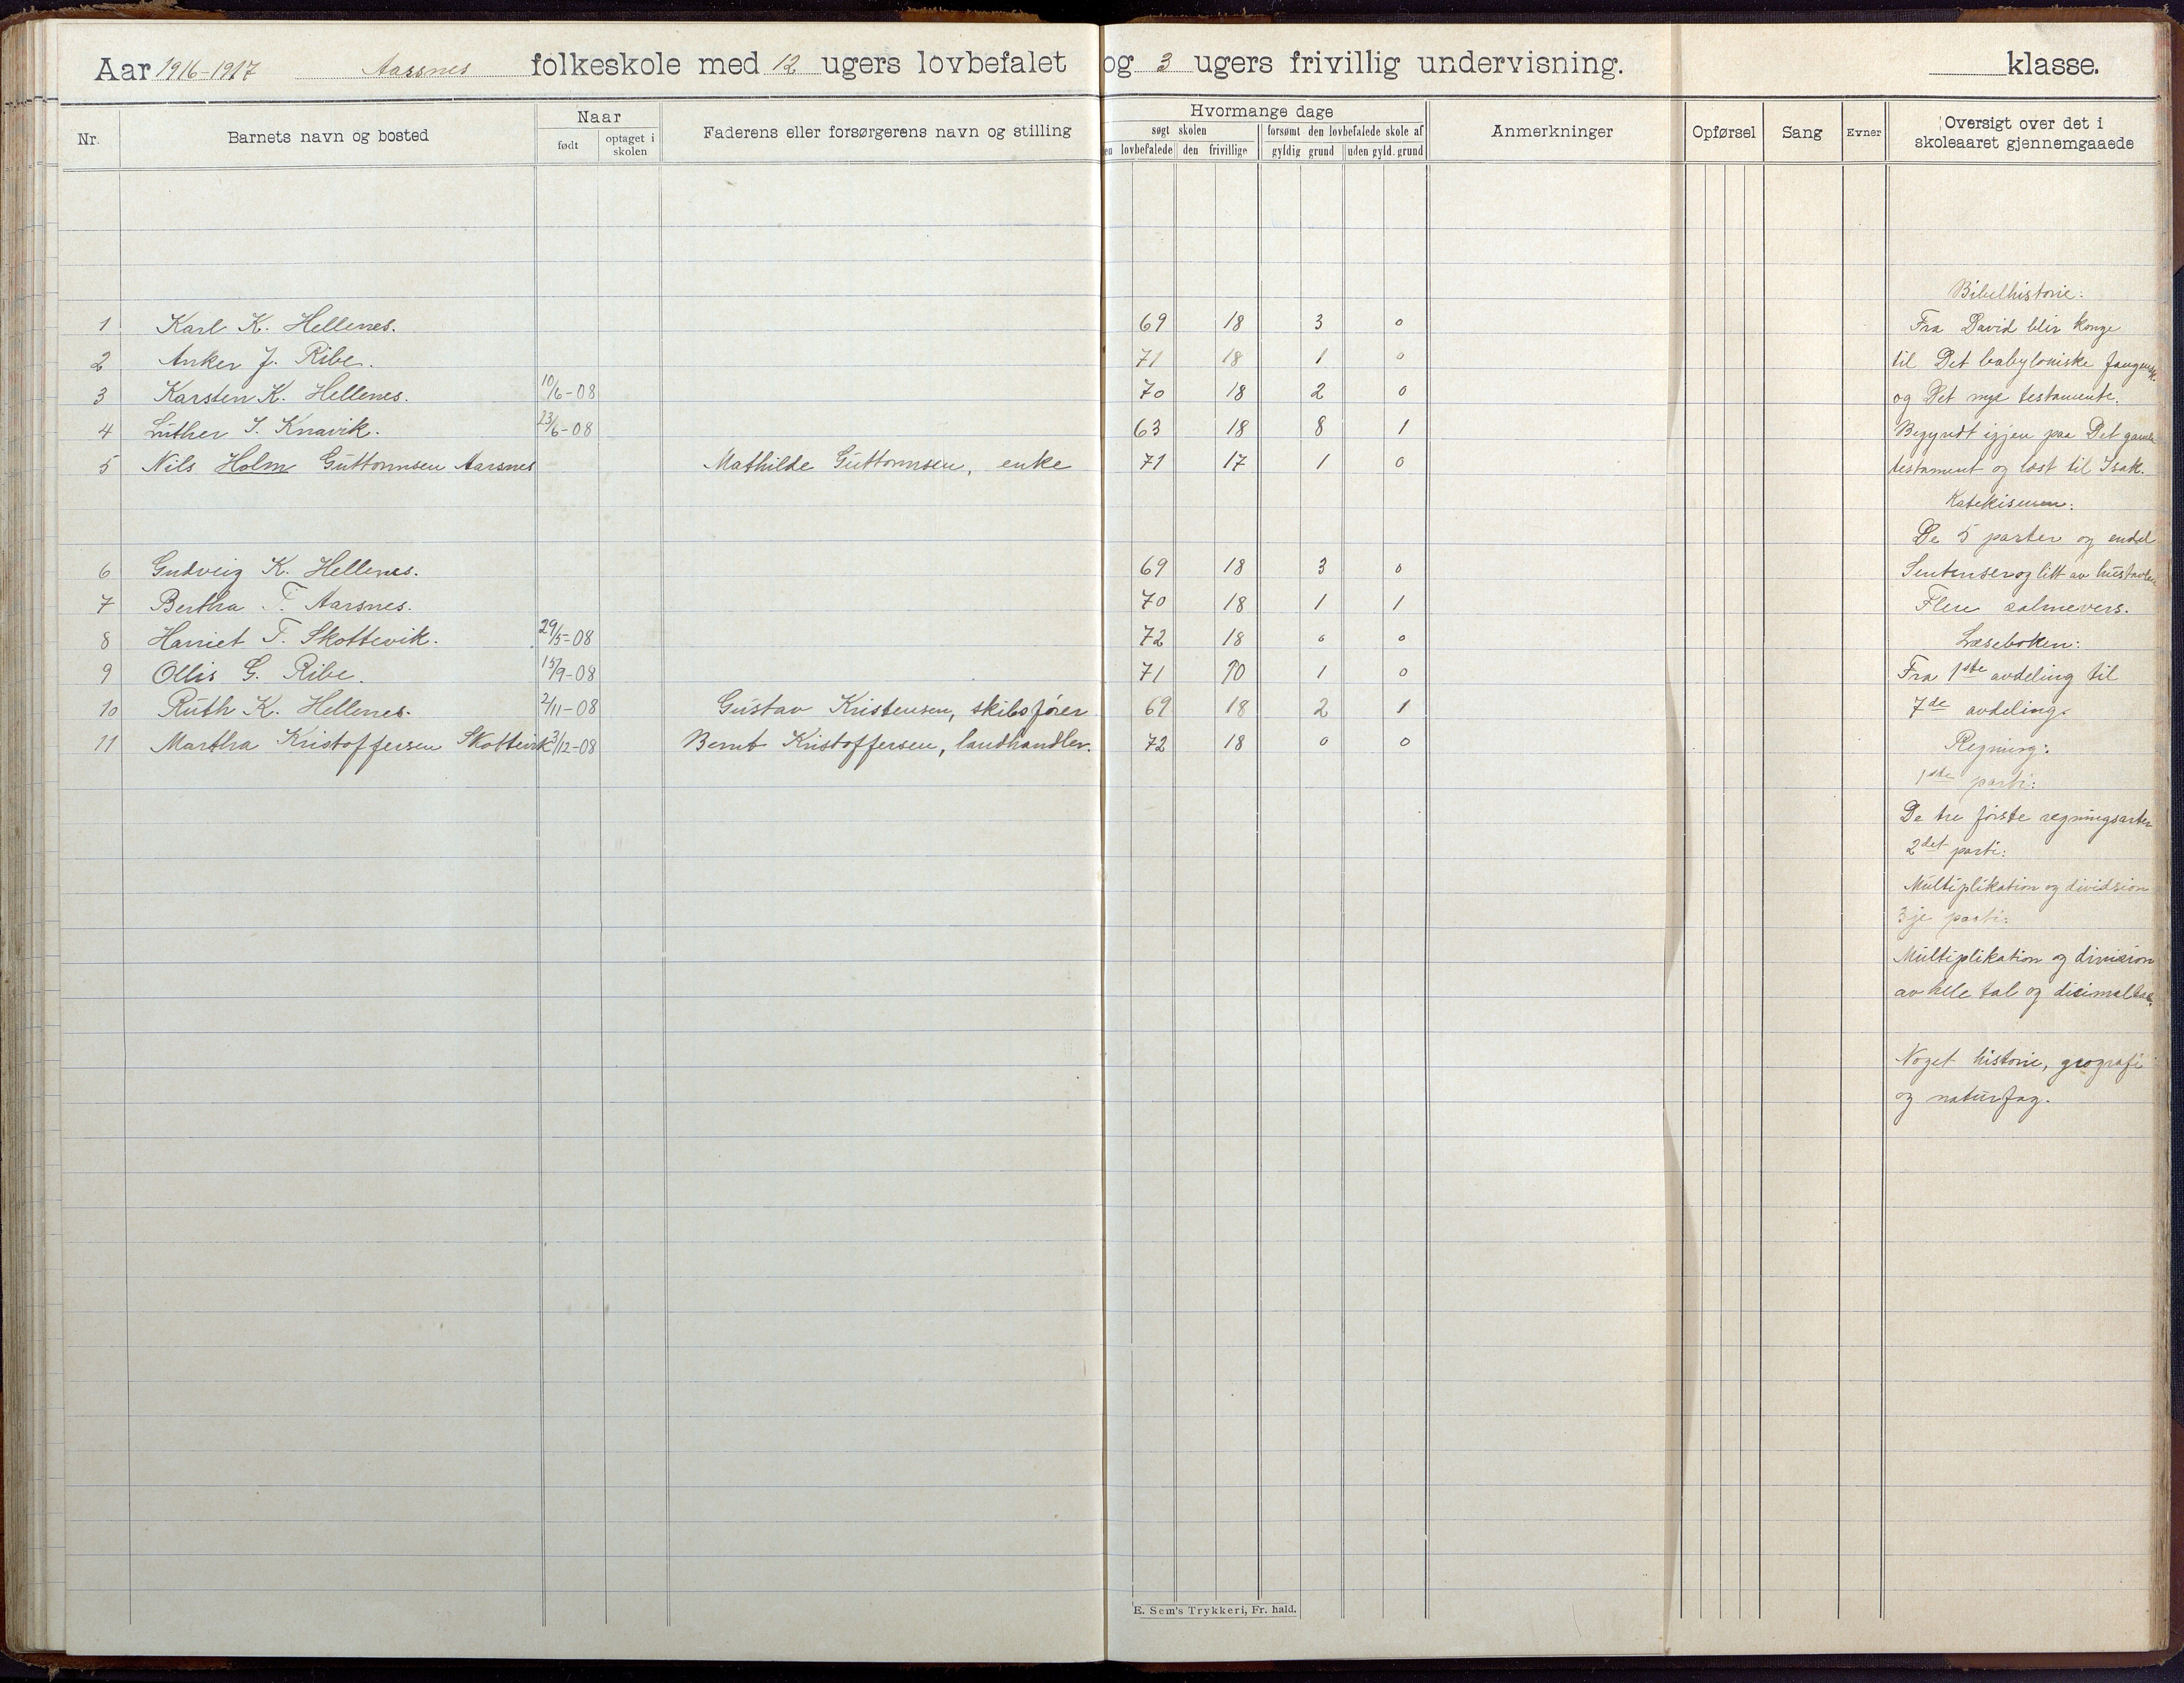 Aar 1916-1917 Aarsnes folkeskole med 12 ugers lovbefalet og 3 ugers frivillig undervisning. klasse.
Nr. Barnets navn og bosted Naar født optaget i skolen Faderens eller forsørgerens navn og stilling
Hvormange dage
søgt skolen forsømt den lovbefalede skole af
lovbefalede den frivillige gyldig grund uden gyld. grund
Anmerkninger Opførsel Sang Evner Oversigt over det i skoleaaret gjennemgaaede
1 Karl K. Hellenes. 69 18 3 0
2 Anker J. Ribe. 71 18 1 0
3 Karsten K. Hellenes. 10/6-08 70 18 2 0
4 Luther I. Knavik. 23/6-08 63 18 8 1
5 Nils Holm Guttormsen Aarsnes Mathilde Guttormsen, enke 71 17 1 0
6 Gudveig K. Hellenes. 69 18 3 0
7 Bertha T. Aarsnes. 70 18 1 1
8 Harriet T. Skottevik. 29/5-08 72 18 0 0
9 Ollis G. Ribe. 15/9-08 71 10 1 0
10 Ruth K. Hellenes. 2/11-08 Gustav Kristensen, skibsfører 69 18 2 1
11 Martha Kristoffersen Skottevik 3/12-08 Bernt Kristoffersen, landhandler. 72 18 0 0
Bibelhistorie:
Fra David blir konge
til Det babyloniske fangensk.
og Det nye testamente.
Begyndt igjen paa Det gamle
testament og læst til Isak.
Katekismen:
De 5 parter og endel
Sentenser og litt av hustavlen
Flere salmevers.
Læseboken:
Fra 1ste avdeling til
7de avdeling.
Regning:
1ste parti:
De tre første regningsarter
2det parti:
Multiplikation og dividsion
3je parti:
Multiplikation og division
av hele tal og disimaltal.
Noget historie, geografi
og naturfag.
E. Sem's Trykkeri, Fr. hald.